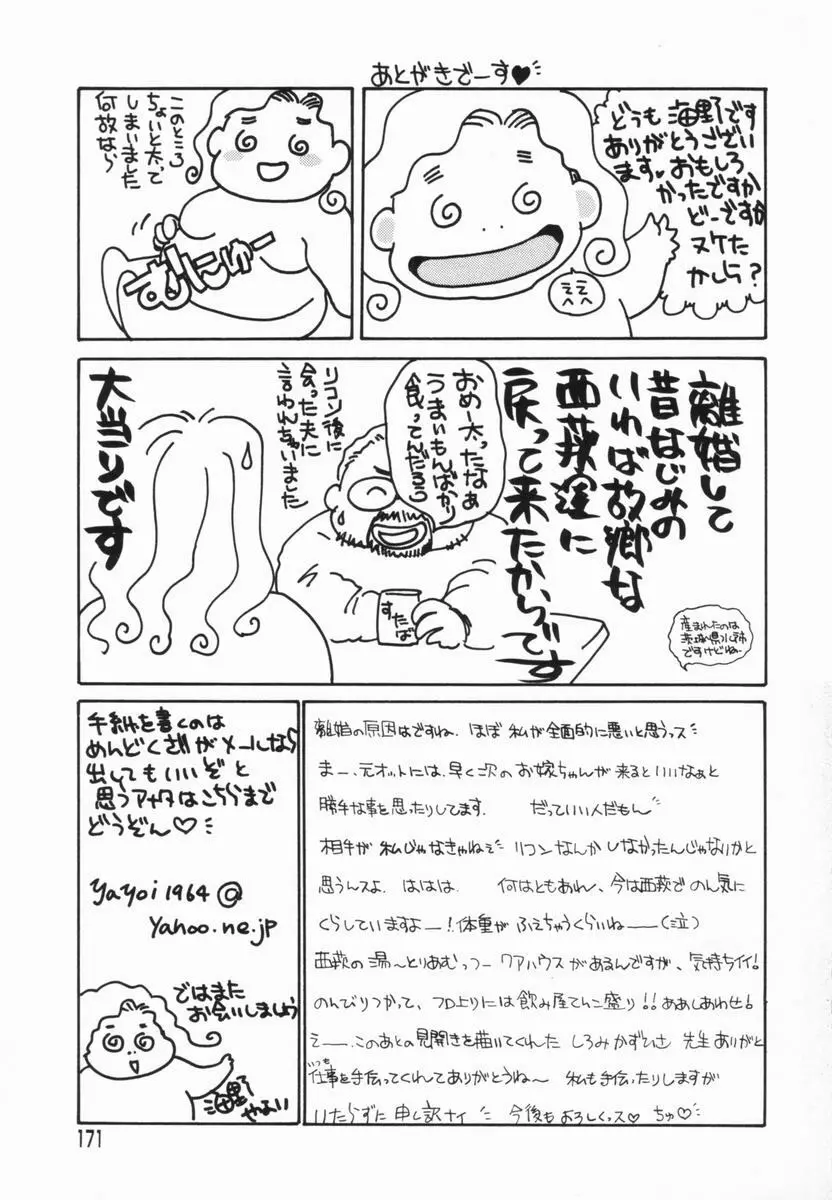 あとがきでーす♥
どうも海野です
ありがとうござい
ます♥おもしろ
かったですか
どーですか
ヌケた
かしら?
このところ
ちょいと太って
しまいました
何故なら
むにゅー
離婚して
昔なじみの
いわば故郷な
西荻窪に
戻って来たからです
産まれたのは
茨城県水戸市
ですけどね。
おめー太ったなぁ
うまいもんばかり
食ってんだろう
すたば
リコン後に
会った夫に
言われちゃいました
大当りです
離婚の原因はですね、ほぼ私が全面的に悪いと思うっス
まー、元オットには、早く次のお嫁ちゃんが来るといいなぁと
勝手な事を思ったりしてます. だっていい人だもん
相手が私じゃなきゃねぇ リコンなんかしなかったんじゃないかと
思うんスよ. ははは. 何はともあれ、今は西荻でのん気に
くらしていますよー!体重がふえちゃうくらいね——(泣)
西荻の湯〜とりあむっつークアハウスがあるんですが、気持ちイイ!
のんびりつかって、フロ上りには飲み屋てんこ盛り!!ああしあわせ!
えー、このあとの見開きを描いてくれたしろみかずひさ先生ありがと
いつも
仕事を手伝ってくれてありがとうね〜 私も手伝ったりしますが
いたらずに申し訳ナイ 今後もよろしくっス♡ ちゅ♡
手紙を書くのは
めんどくさいがメールなら
出してもいいぞと
思うアナタはこちらまで
どうぞん♡
yayoi1964@
yahoo.ne.jp
ではまた
お会いしましょう
海野
やよい
171